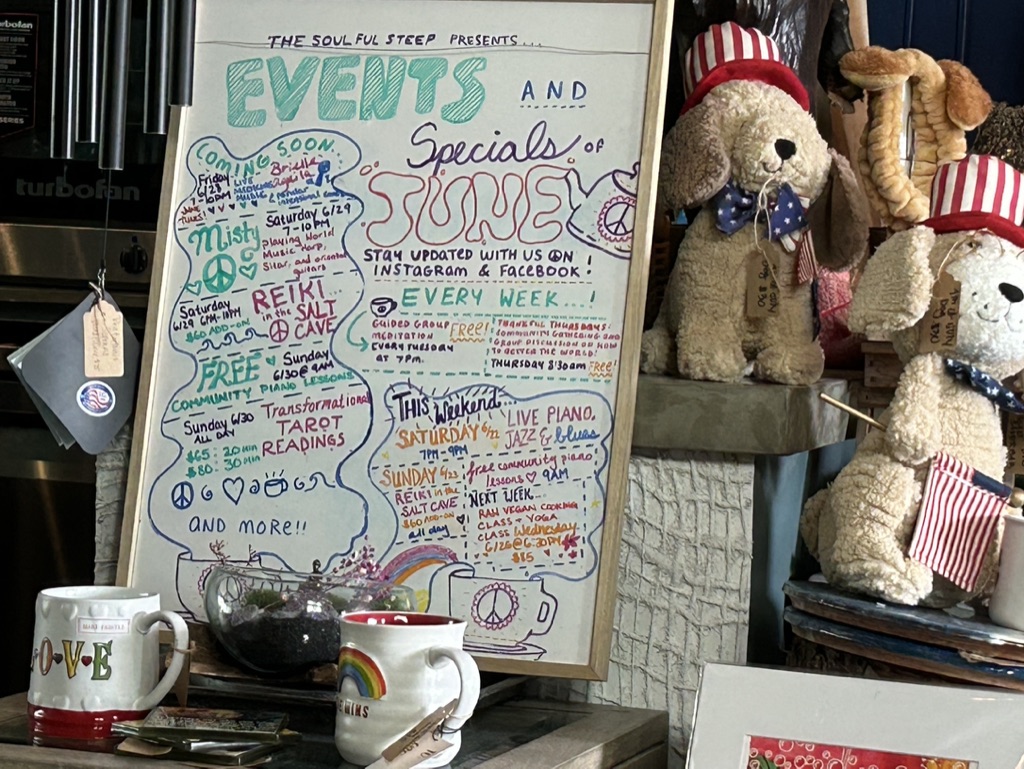 THE SOULFUL STEEP PRESENTS...
EVENTS AND
Specials OF
JUNE
STAY UPDATED WITH US ON
INSTAGRAM & FACEBOOK!
COMING SOON.
Friday
6/28
7-10PM
LIVE
MUSIC
Brielle
Misty
Saturday 6/29
7-10PM
playing World
Music Harp,
Sitar, and oriental
guitars
Saturday
6/29 6PM-10PM
$60 ADD-ON
REIKI
in the SALT
CAVE
FREE
Sunday
6/30 @ 9AM
COMMUNITY PIANO LESSONS
Sunday 6/30
ALL DAY
$65 - 20 MIN
$80 - 30 MIN
Transformational
TAROT
READINGS
AND MORE!!
EVERY WEEK...!
GUIDED GROUP
MEDITATION
FREE!
EVERY TUESDAY
AT 7PM.
THANKFUL THURSDAYS:
COMMUNITY GATHERING AND
GROUP DISCUSSION ON HOW
TO BETTER THE WORLD!
THURSDAY 8:30am FREE!
THIS Weekend...
SATURDAY 6/22
7PM-9PM
LIVE PIANO,
JAZZ & blues
SUNDAY 6/23
REIKI in the
SALT CAVE
$60 ADD-ON
all day
free community piano
lessons 9AM
NEXT WEEK...
RAW VEGAN COOKING
CLASS + YOGA
CLASS Wednesday
6/26 @ 6:30PM
$15
turbofan
turbofan
SERIES
OVE